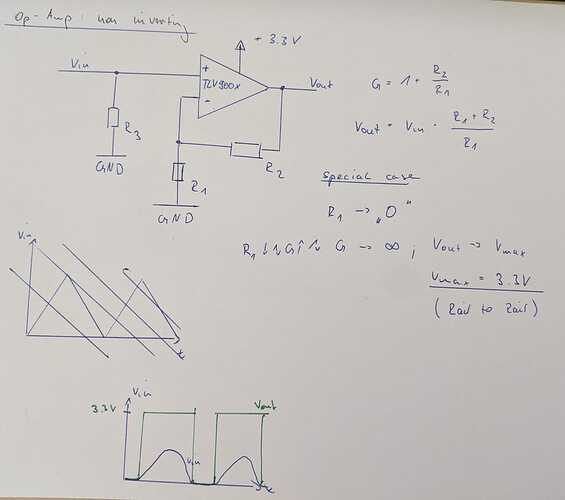 Op-Amp: non inverting
+ 3.3 V
Vin
+
TLV900x
-
Vout
R3
GND
R1
R2
GND
G = 1 + R2/R1
Vout = Vin · R1 + R2/R1
special case
R1 → „0"
R1 ↓ ↷ G↑ ↷ G → ∞ ; Vout → Vmax
Vmax = 3.3V
(Rail to Rail)
Vin
t
Vin
3.3V
Vout
Vin